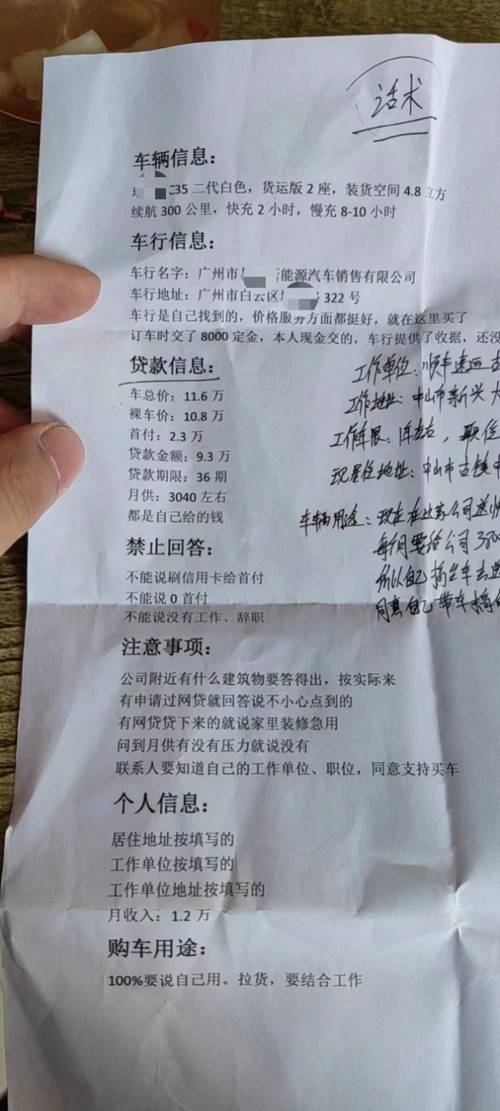 话术
车辆信息:
35 二代白色，货运版 2 座，装货空间 4.8 立方
续航 300 公里，快充 2 小时，慢充 8-10 小时
车行信息:
车行名字：广州市 能源汽车销售有限公司
车行地址：广州市白云区 322 号
车行是自己找到的，价格服务方面都挺好，就在这里买了
订车时交了 8000 定金，本人现金交的，车行提供了收据，还没
贷款信息:
车总价：11.6 万
裸车价：10.8 万
首付：2.3 万
贷款金额：9.3 万
贷款期限：36 期
月供：3040 左右
都是自己给的钱
工作单位：顺丰速运
工作地址：中山市新兴大
工作年限：年左右，职位
现居住地址：中山市古镇
车辆用途：现在在这家公司送
每月要给公司
所以自己
同意自己带车
禁止回答:
不能说刷信用卡给首付
不能说 0 首付
不能说没有工作、辞职
注意事项:
公司附近有什么建筑物要答得出，按实际来
有申请过网贷就回答说不小心点到的
有网贷贷下来的就说家里装修急用
问到月供有没有压力就说没有
联系人要知道自己的工作单位、职位，同意支持买车
个人信息:
居住地址按填写的
工作单位按填写的
工作单位地址按填写的
月收入：1.2 万
购车用途:
100%要说自己用。拉货，要结合工作